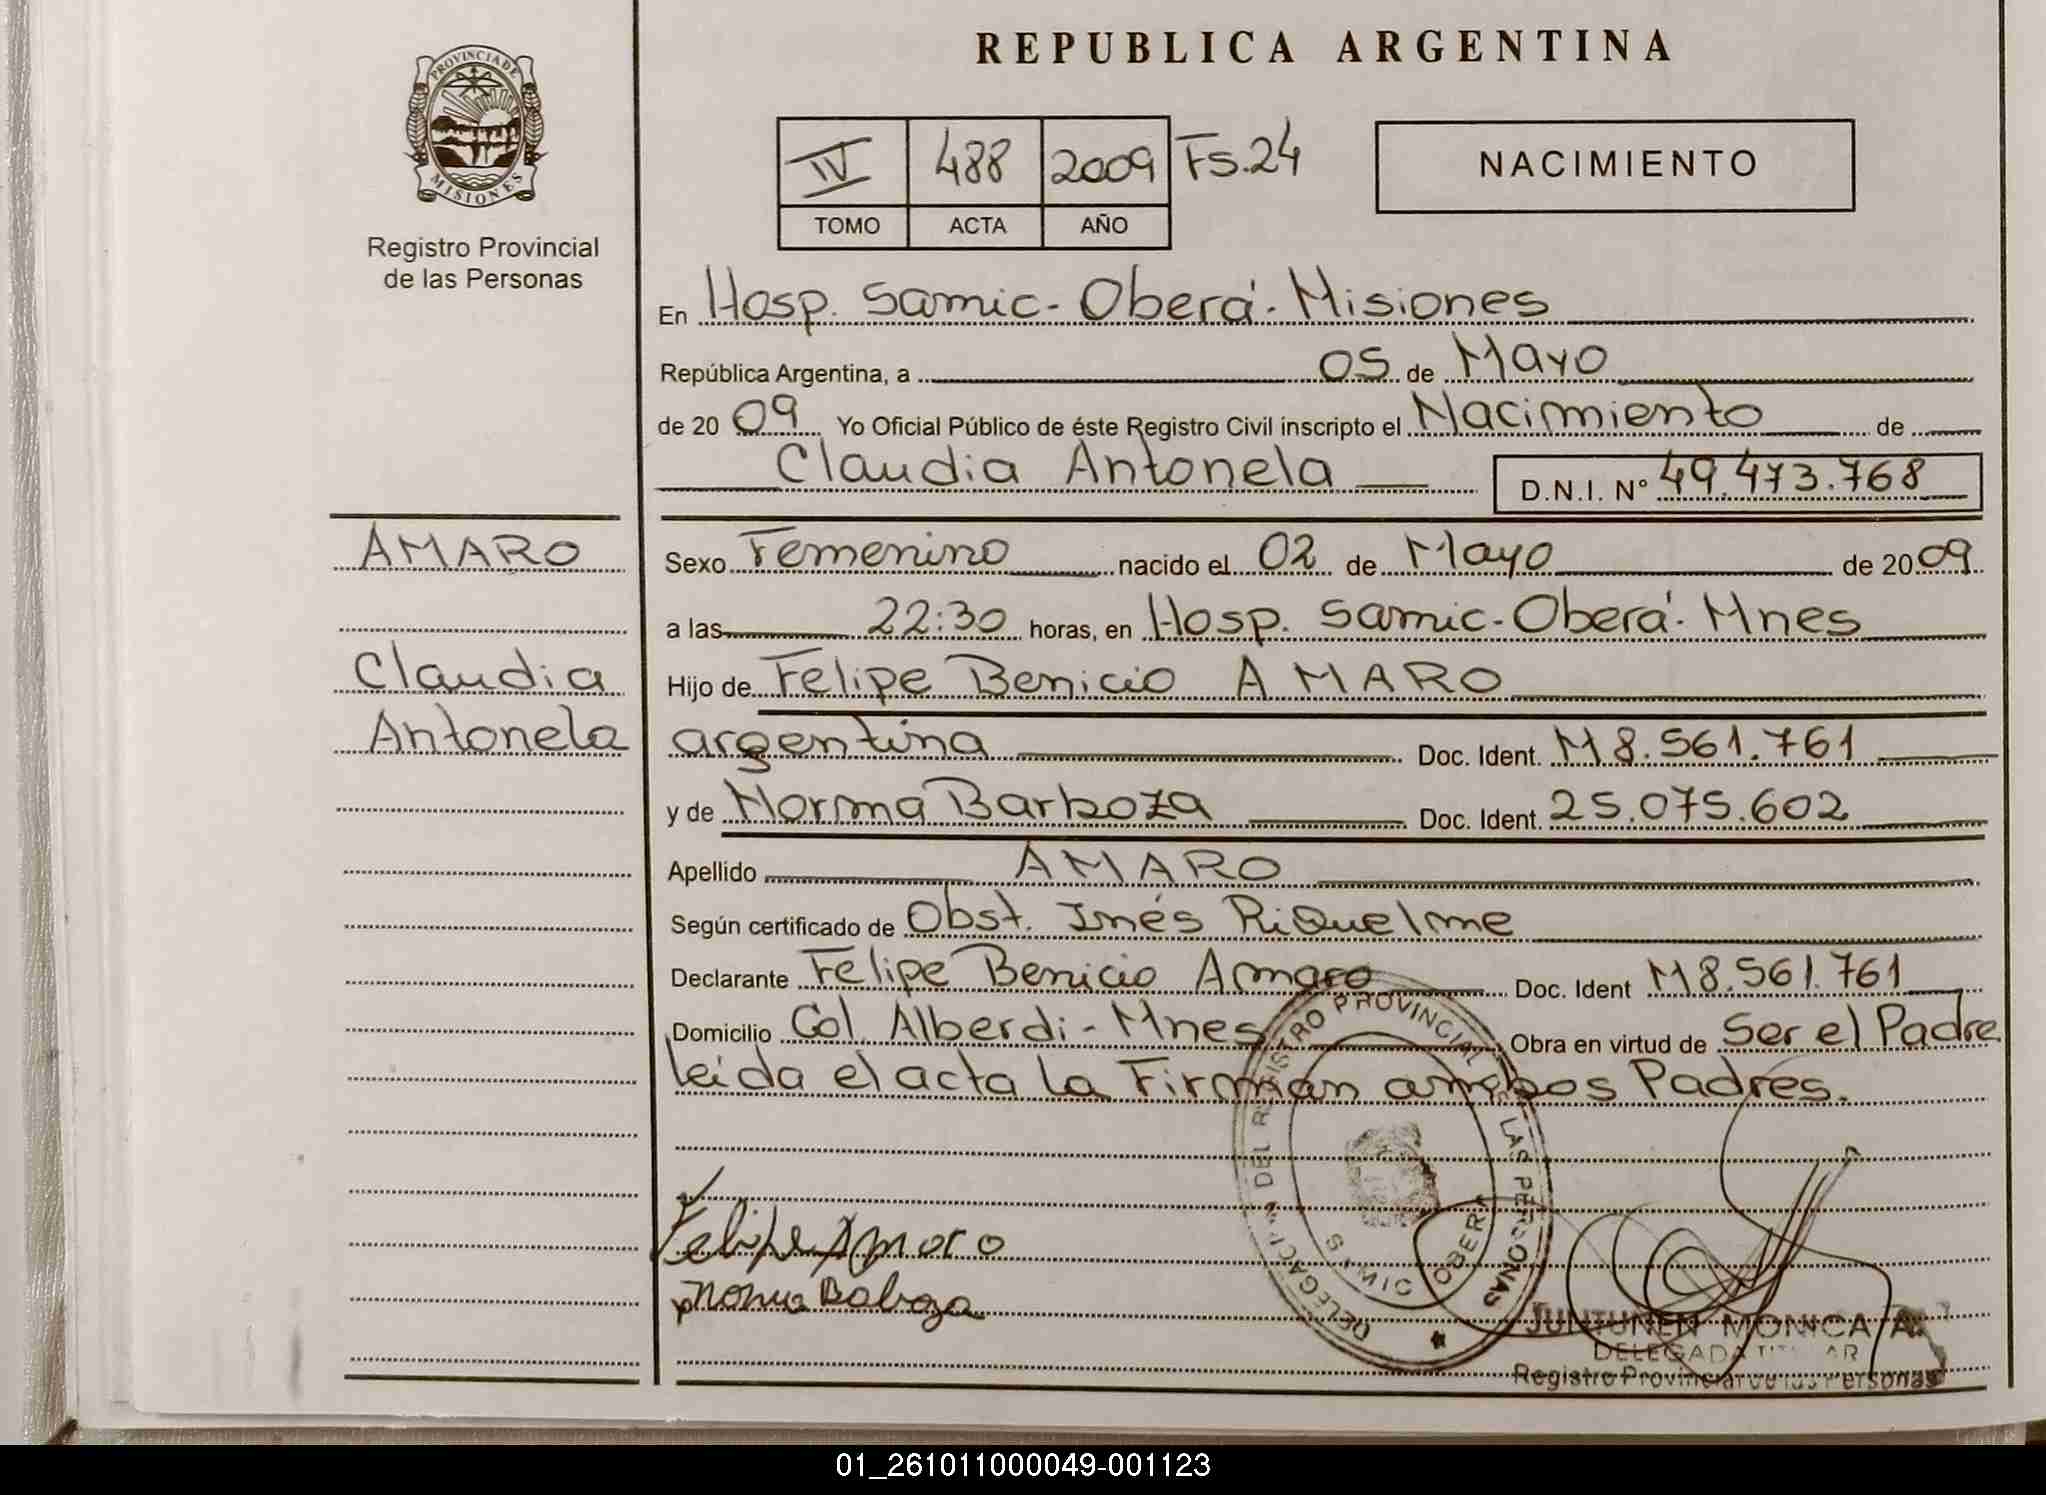 REPUBLICA ARGENTINA
PROVINCIA DE
MISIONES
Registro Provincial
de las Personas
IV 488 2009 Fs.24
TOMO ACTA AÑO
NACIMIENTO
En Hosp. Samic - Oberá - Misiones
República Argentina, a 05 de Mayo
de 2009 Yo Oficial Público de éste Registro Civil inscripto el Nacimiento de
Claudia Antonela D.N.I. Nº 49.473.768
AMARO
Claudia
Antonela
Sexo Femenino nacido el 02 de Mayo de 2009
a las 22:30 horas, en Hosp. Samic - Oberá - Mnes
Hijo de Felipe Benicio AMARO
argentina Doc. Ident. M8.561.761
y de Norma Barboza Doc. Ident. 25.075.602
Apellido AMARO
Según certificado de Obst. Inés Riquelme
Declarante Felipe Benicio Amaro Doc. Ident M8.561.761
Domicilio Col. Alberdi - Mnes Obra en virtud de Ser el Padre
leída el acta la Firman ambos Padres.
DEL REGISTRO PROVINCIAL DE LAS PERSONAS
OBERA
Felipe Amaro
JUNTUNEN MONICA A.
DELEGADA TITULAR
Registro Provincial de las Personas
01_261011000049-001123